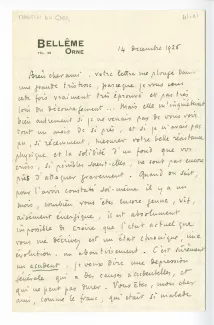 BELLÊME
TEL. 28 ORNE
14 Décembre 1926
Bien cher ami, votre lettre me plonge dans
une grande tristesse, parce que je vous sens
cette fois vraiment très éprouvé et pas très
loin du découragement... Mais elle m'inquièterait
bien autrement si je ne venais pas de vous voir
tout un mois de si près, et si je n'avais pas
pu, si récemment, mesurer votre belle résistance
physique et la solidité d'un fond que vos
crises, si pénibles soient-elles, ne sont pas encore
près d'attaquer gravement. Quand on sait,
pour l'avoir constaté soi-même il y a un
mois, combien vous êtes encore jeune, vif,
aisément énergique, il est absolument
impossible de croire que l'état actuel que
vous me décrivez est un état chronique, une
évolution - un aboutissement. C'est sûrement
un accident, je veux dire une dépression
générale qui a des causes accidentelles, et
qui ne peut pas durer. Vous êtes, mon cher
ami, comme le franc, qui était si malade